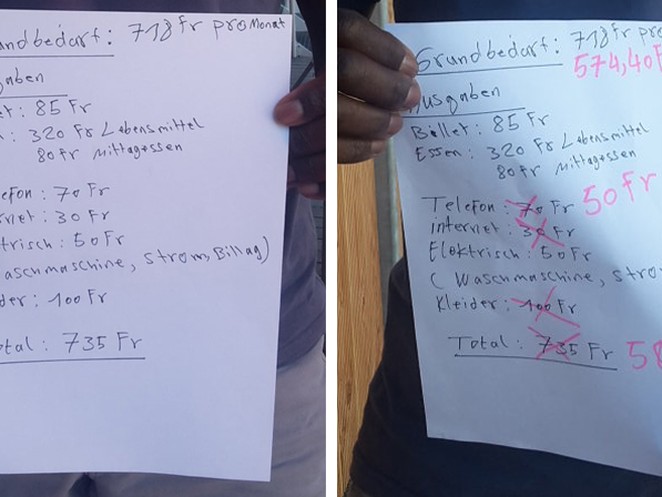 undbedarf: 718 Fr pro Monat
gaben
et: 85 Fr
: 320 Fr Lebensmittel
80 Fr Mittagessen
efon: 70 Fr
rnet: 30 Fr
trisch: 50 Fr
aschmaschine, Strom, Billag)
der: 100 Fr
otal: 735 Fr
Grundbedarf: 718 Fr pro
574,40 F
Ausgaben
Billet: 85 Fr
Essen: 320 Fr Lebensmittel
80 Fr Mittagessen
Telefon: 70 Fr 50 Fr
internet: 30 Fr
Elektrisch: 50 Fr
( Waschmaschine, Stro
Kleider: 100 Fr
Total: 735 Fr 58